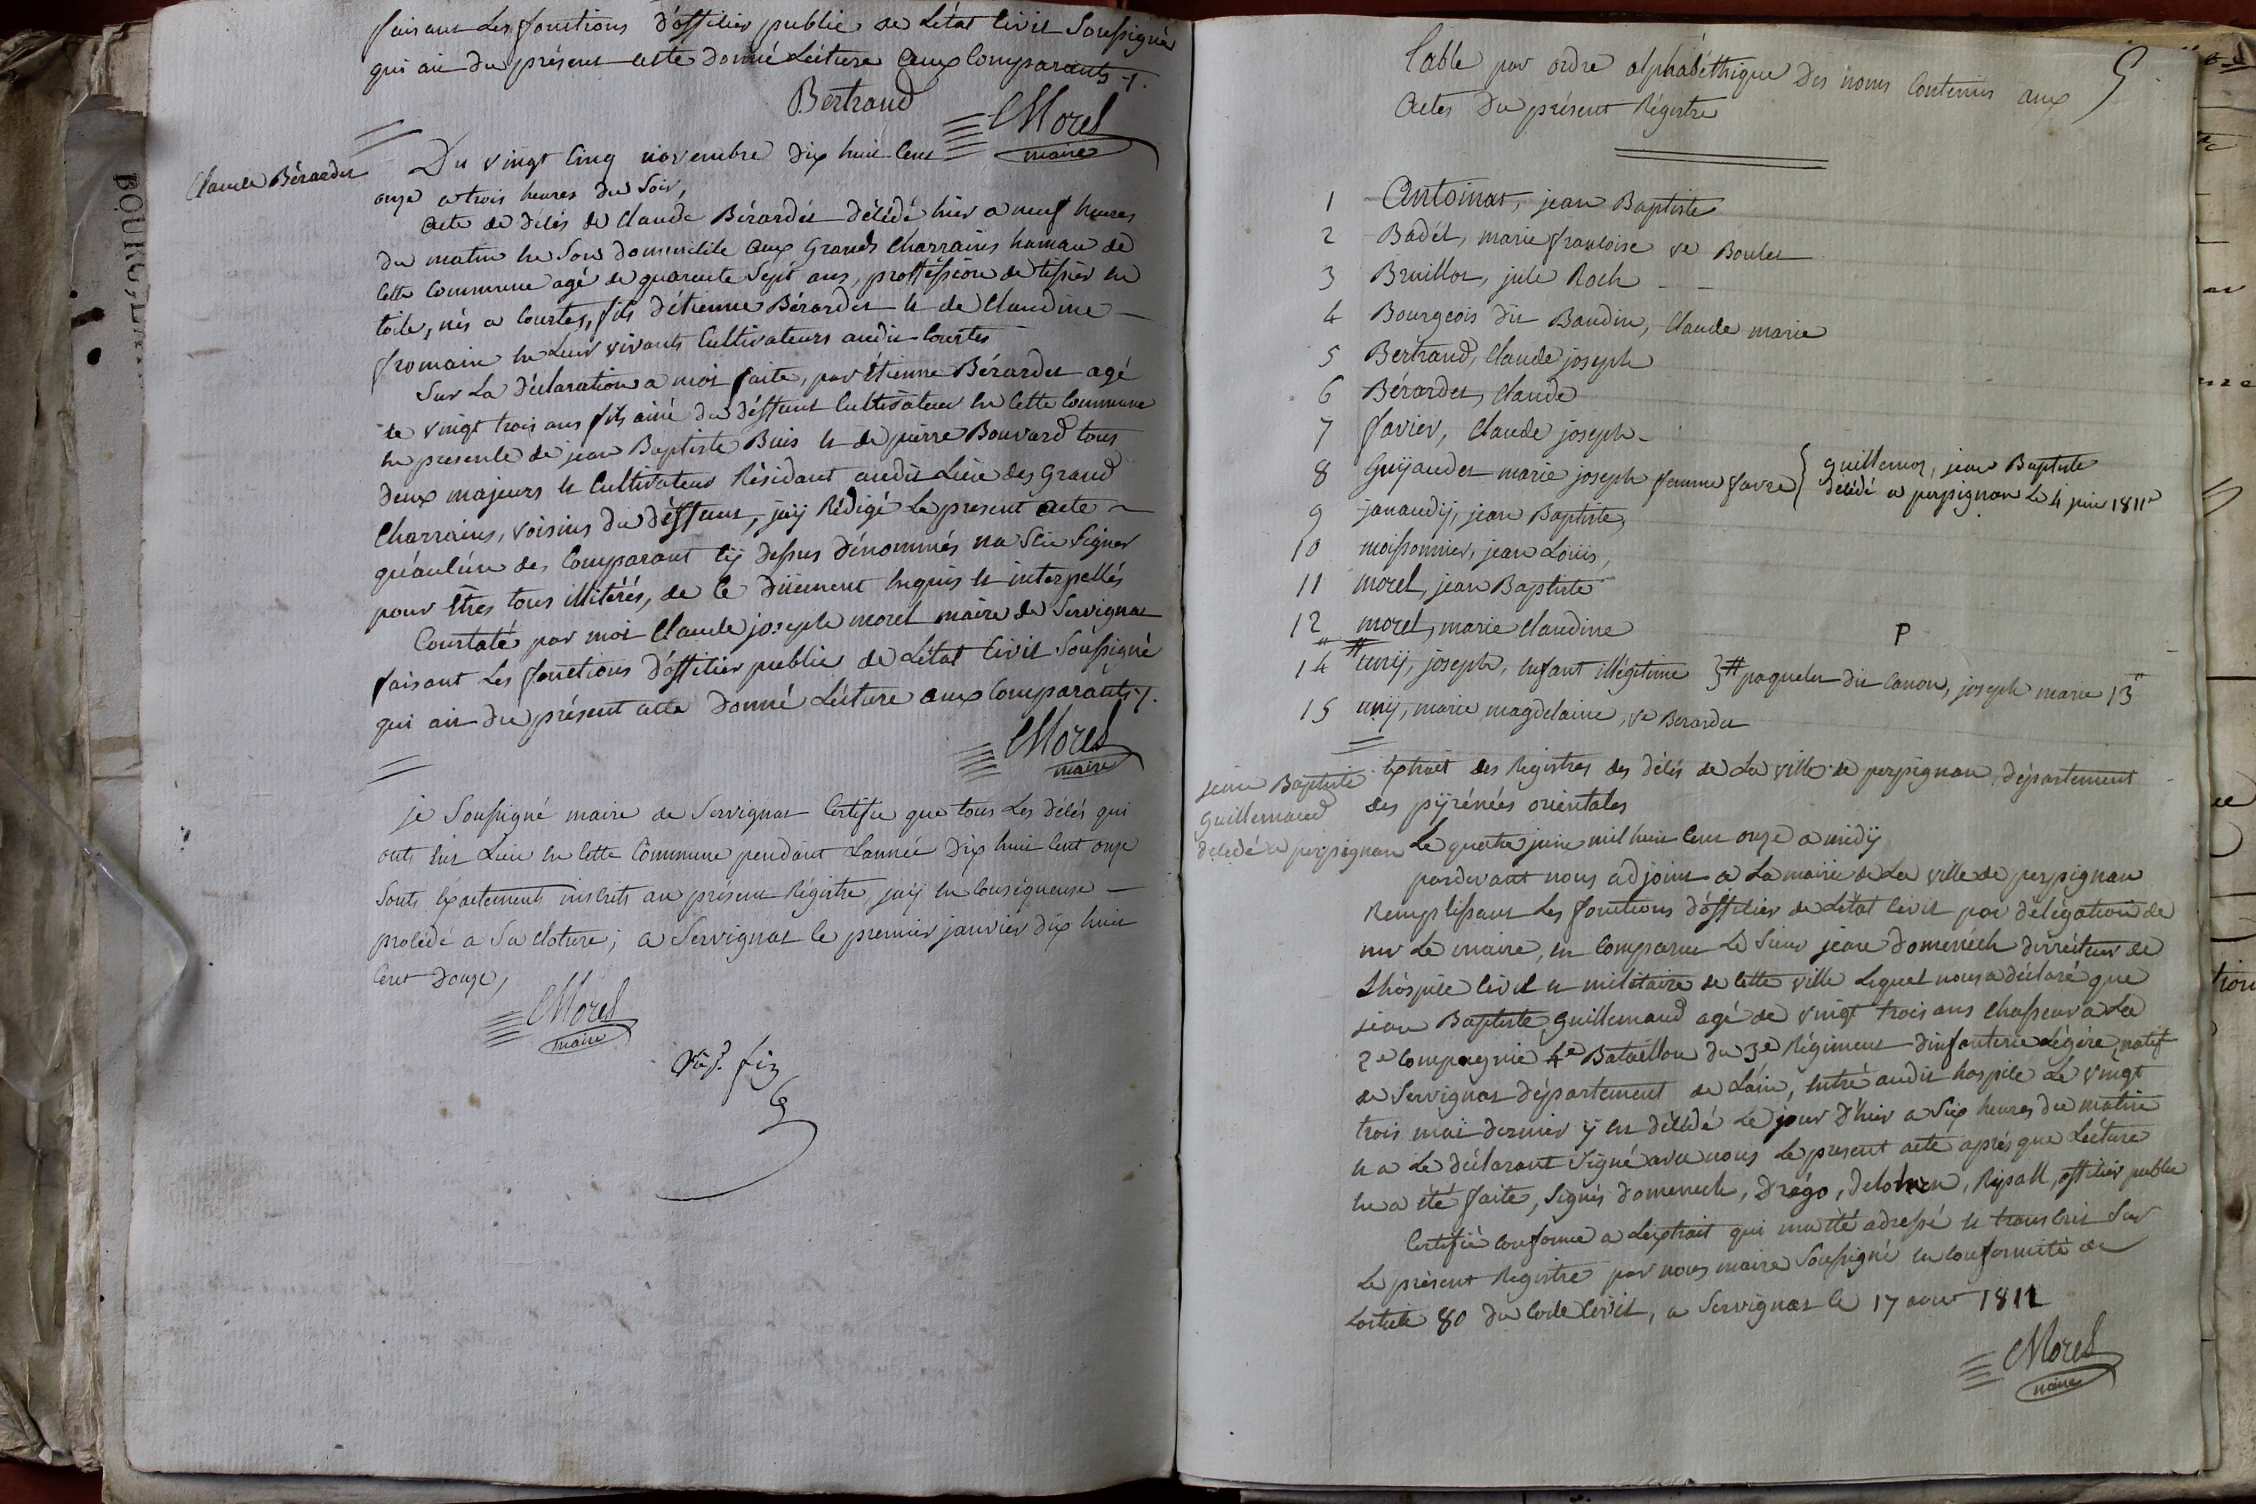 faisant Les fonctions d'offitier public de L'état Civil Soussigné
qui ai du présent acte donné Lécture aux Comparants ./.
Bertrand
CMorel
maire
Claude Bérardet
Du vingt Cinq novembre dix huit Cent
onze a trois heures du Soir,
acte de décés de Claude Bérardet décédé hier a neuf heures
du matin en Son domicilile aux Grands Charrains hamau de
Cette Commune agé de quarente Sept ans, proffession de tissier en
toile, nés a Courtes, fils d'étienne Bérardet et de Claudine
fromain en Leur vivants Cultivateurs audit Courtes
Sur La déclaration a moi faite, par étienne Bérardet agé
de vingt trois ans fils ainé du déffunt Cultivateur en Cette Commune
en presence de jean Baptiste Buis et de pierre Bouvard tous
deux majeurs et Cultivateur Résidant audit Lieu des Grand
Charrains, voisins du déffunt, jaij Rédigé Le present acte
qu'auCun des Comparant Cij dessus dénommés na Scu Signer
pour êtres tous illitérés, de Ce dûement Enquis et interpellés
Constaté par moi Claude joseph morel maire de Servignat
faisant Les fonctions d'offitier public de L'état Civil Soussigné
qui ai du présent acte donné Lécture aux Comparants ./.
CMorel
maire
je Soussigné maire de Servignat Certifie que tous Les décés qui
onts Eut Lieu en Cette Commune pendant Lannée dix huit Cent onze
Sonts Exactements inscrits au présent Régistre, jaij en Conséquense
procédé a Sa cloture; a Servignat le premier janvier dix huit
Cent douze,
CMorel
maire
fin
Table par ordre alphabéthique des noms Contenus aux
Actes du présent Régistre
5
1 Antoinat, jean Baptiste
2 Badét, marie francoise ve Boulet
3 Bruillot, jule Roch
4 Bourgeois dit Baudin, Claude marie
5 Bertrand, Claude joseph
6 Bérardet, Claude
7 favier, Claude joseph
8 Guÿaudet marie joseph femme favre { guillemot, jean Baptiste
décédé a perpignan Le 4 juin 1811
9 janaudij, jean Baptiste,
10 moissonnier, jean Louis,
11 morel, jean Baptiste
12 morel, marie Claudine
P
14 # unij, joseph, Enfant illégitime } # paquelet dit Canon, joseph marie 13
15 unij, marie magdelaine, ve Berardet
jean Baptiste
Guillemaud
décédé a perpignan
Extrait des Régistres des décés de La ville de perpignan, département
des pÿrénées orientales
Le quatre juin mil huit Cent onze a midij
pardevant nous adjoint a La mairie de La ville de perpignan
Remplissant Les fonctions d'offitier de L'état Civil par délégation de
mr Le maire, Est Comparut Le Sieur jean domenéch dirrécteur de
Lhospice Civil et militaire de Cette ville Lequel nous a déclaré que
jean Baptiste Guillemaud agé de vingt trois ans Chasseur a La
2e Compagnie 4e Bataillon du 3e Régiment dinfanterie Légére, natif
de Servignat département de Lain, Entré audit hospice Le vingt
trois mai dernier ij Est décédé Le jour d'hier a Six heures du matin
et a Le déclarant Signé avec nous Le present acte aprés que Lécture
en a été faite, Signés domenech, Drogo, delohren, Ripoll, offitier public
Certifié Conforme a Lextrait qui ma été adressé et transcrit Sur
Le présent Régistre par nous maire Soussigné en Conformité de
Larticle 80 du Code Civil, a Servignat le 17 aout 1811
CMorel
maire